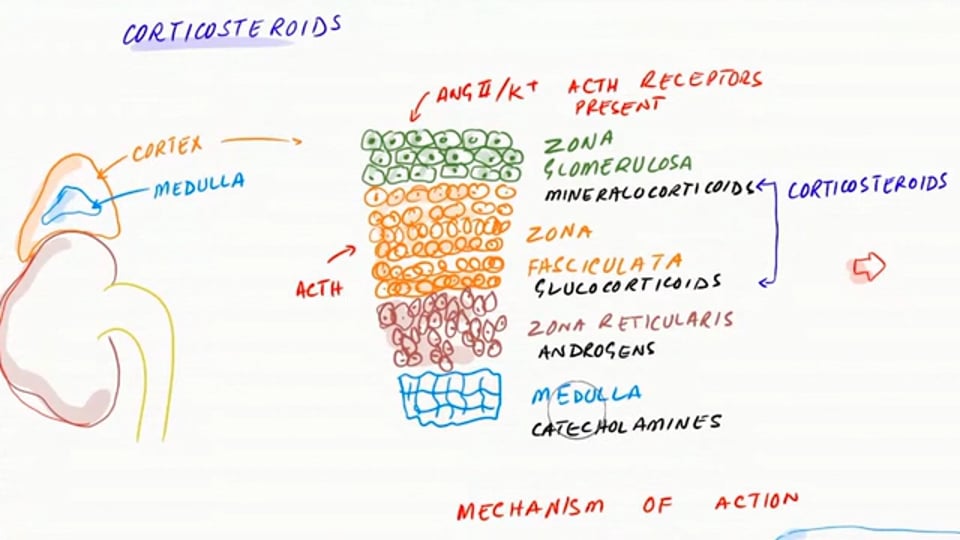 CORTICOSTEROIDS
ANG II/K+ ACTH RECEPTORS
PRESENT
CORTEX
MEDULLA
ZONA
GLOMERULOSA
MINERALOCORTICOIDS
CORTICOSTEROIDS
ZONA
FASCICULATA
GLUCOCORTICOIDS
ACTH
ZONA RETICULARIS
ANDROGENS
MEDULLA
CATECHOLAMINES
MECHANISM OF ACTION